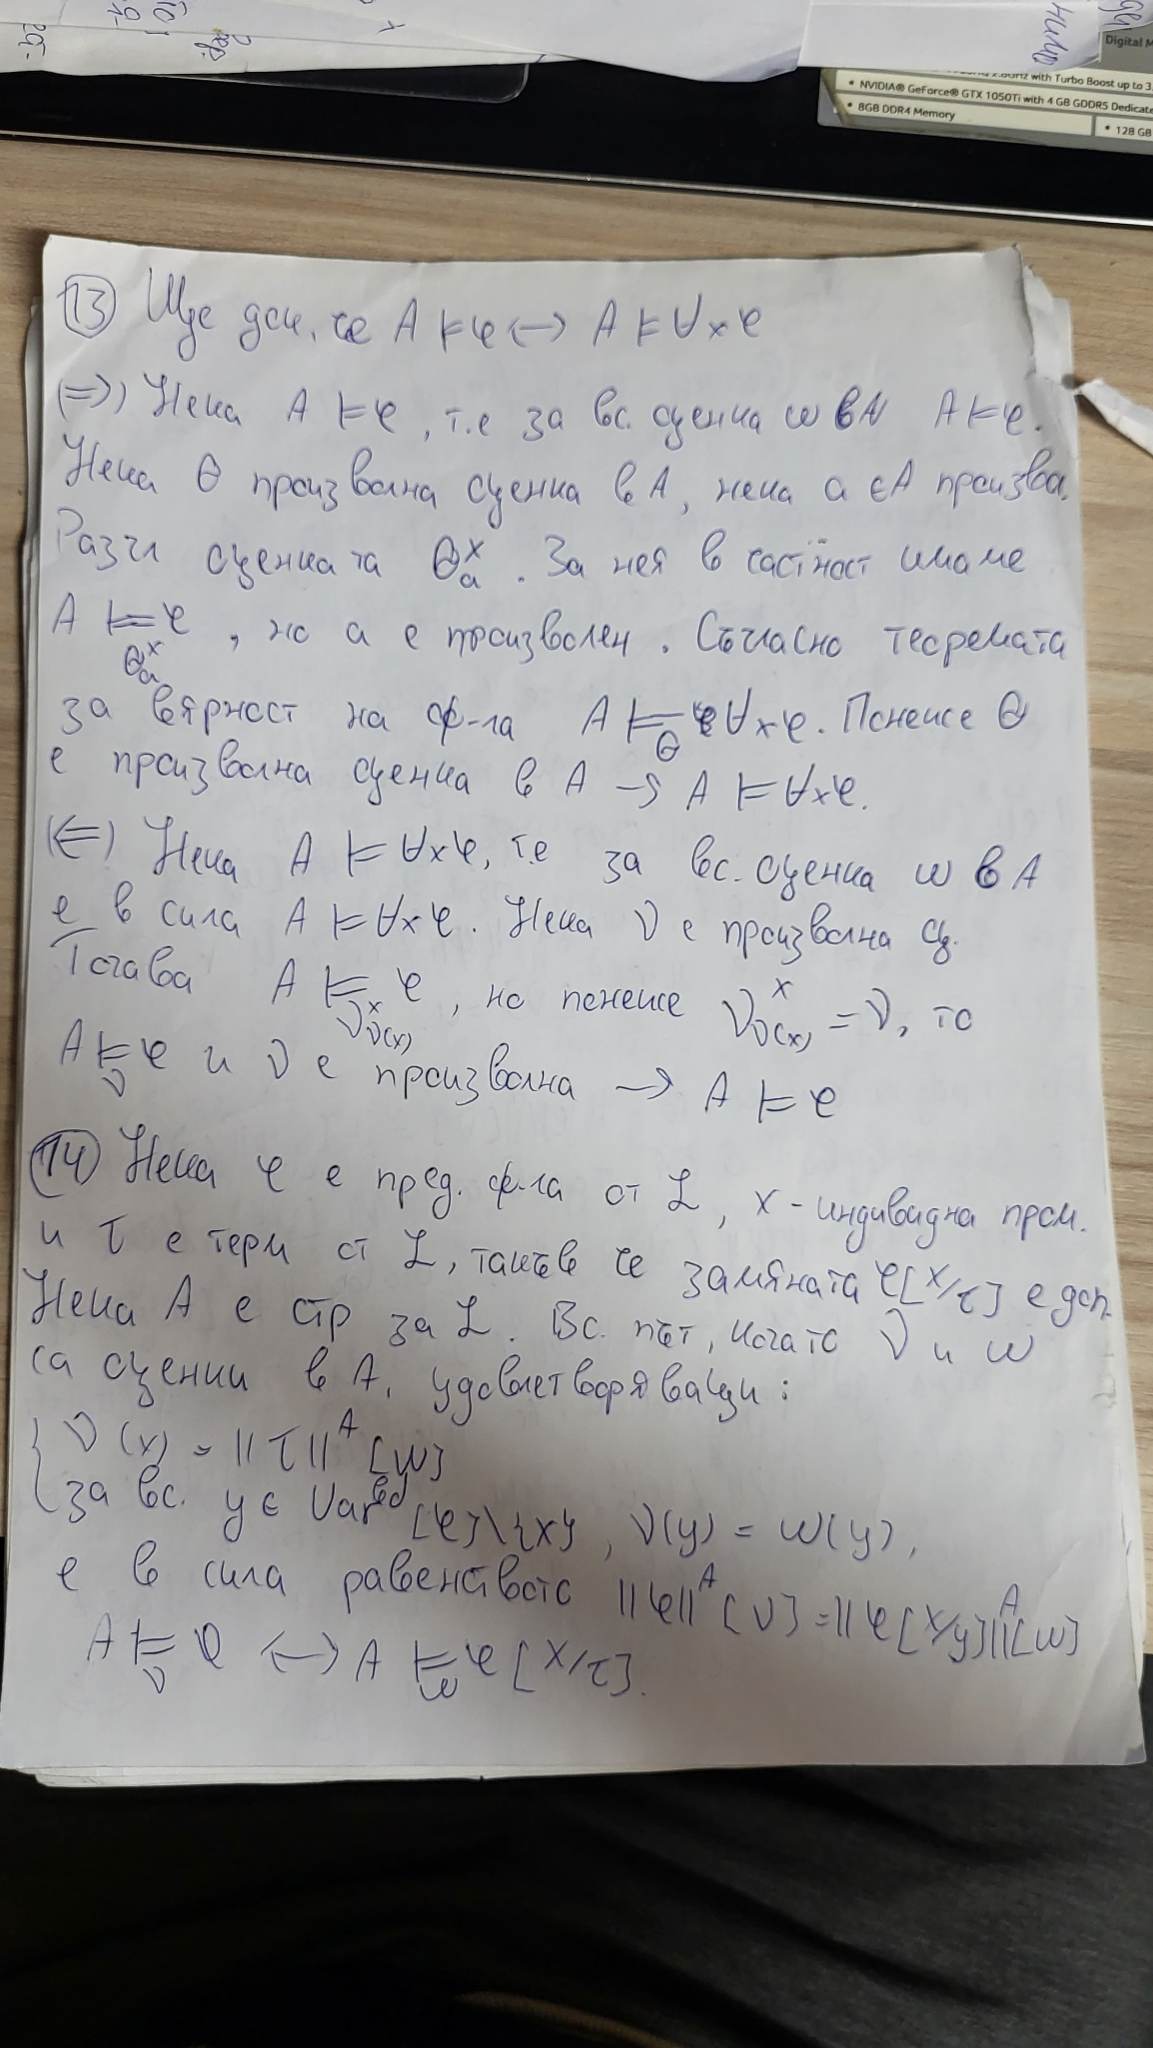 Digital M
2.8GHz with Turbo Boost up to 3.
• NVIDIA® GeForce® GTX 1050Ti with 4 GB GDDR5 Dedicate
• 8GB DDR4 Memory
• 128 GB
13 Ще док. че A ⊨ φ ↔ A ⊨ ∀xφ
(⇒) Нека A ⊨ φ, т.е за вс. оценка w в A A ⊨ φ.
Нека θ произволна оценка в A, нека a ∈ A произвол.
Разгл оценката θ^x_a. За нея в частност имаме
A ⊨_{θ^x_a} φ, но a е произволен. Съгласно теоремата
за вярност на ф-ла A ⊨_θ ∀xφ. Понеже θ
е произволна оценка в A → A ⊨ ∀xφ.
(⇐) Нека A ⊨ ∀xφ, т.е за вс. оценка w в A
е в сила A ⊨ ∀xφ. Нека ν е произволна оц.
Тогава A ⊨_{ν^x_{ν(x)}} φ, но понеже ν^x_{ν(x)} = ν, то
A ⊨_ν φ и ν е произволна → A ⊨ φ
14 Нека φ е пред. ф-ла от L, x - индивидна пром.
и τ е терм от L, такъв че замяната φ[x/τ] е доп.
Нека A е стр за L. Вс. път, когато ν и w
са оценки в A, удовлетворяващи:
{ ν(x) = ||τ||^A [w]
за вс. y ∈ Var [φ]\{x}, ν(y) = w(y),
е в сила равенството ||φ||^A [ν] = ||φ[x/y]||^A [w]
A ⊨_ν φ ↔ A ⊨_w φ[x/τ].